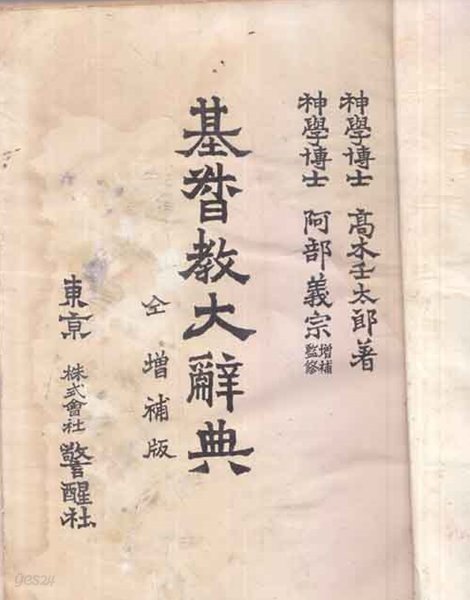 神學博士 高木壬太郎著
神學博士 阿部義宗 增補監修
基督教大辭典
全 增補版
東京 株式會社 警醒社
yes24